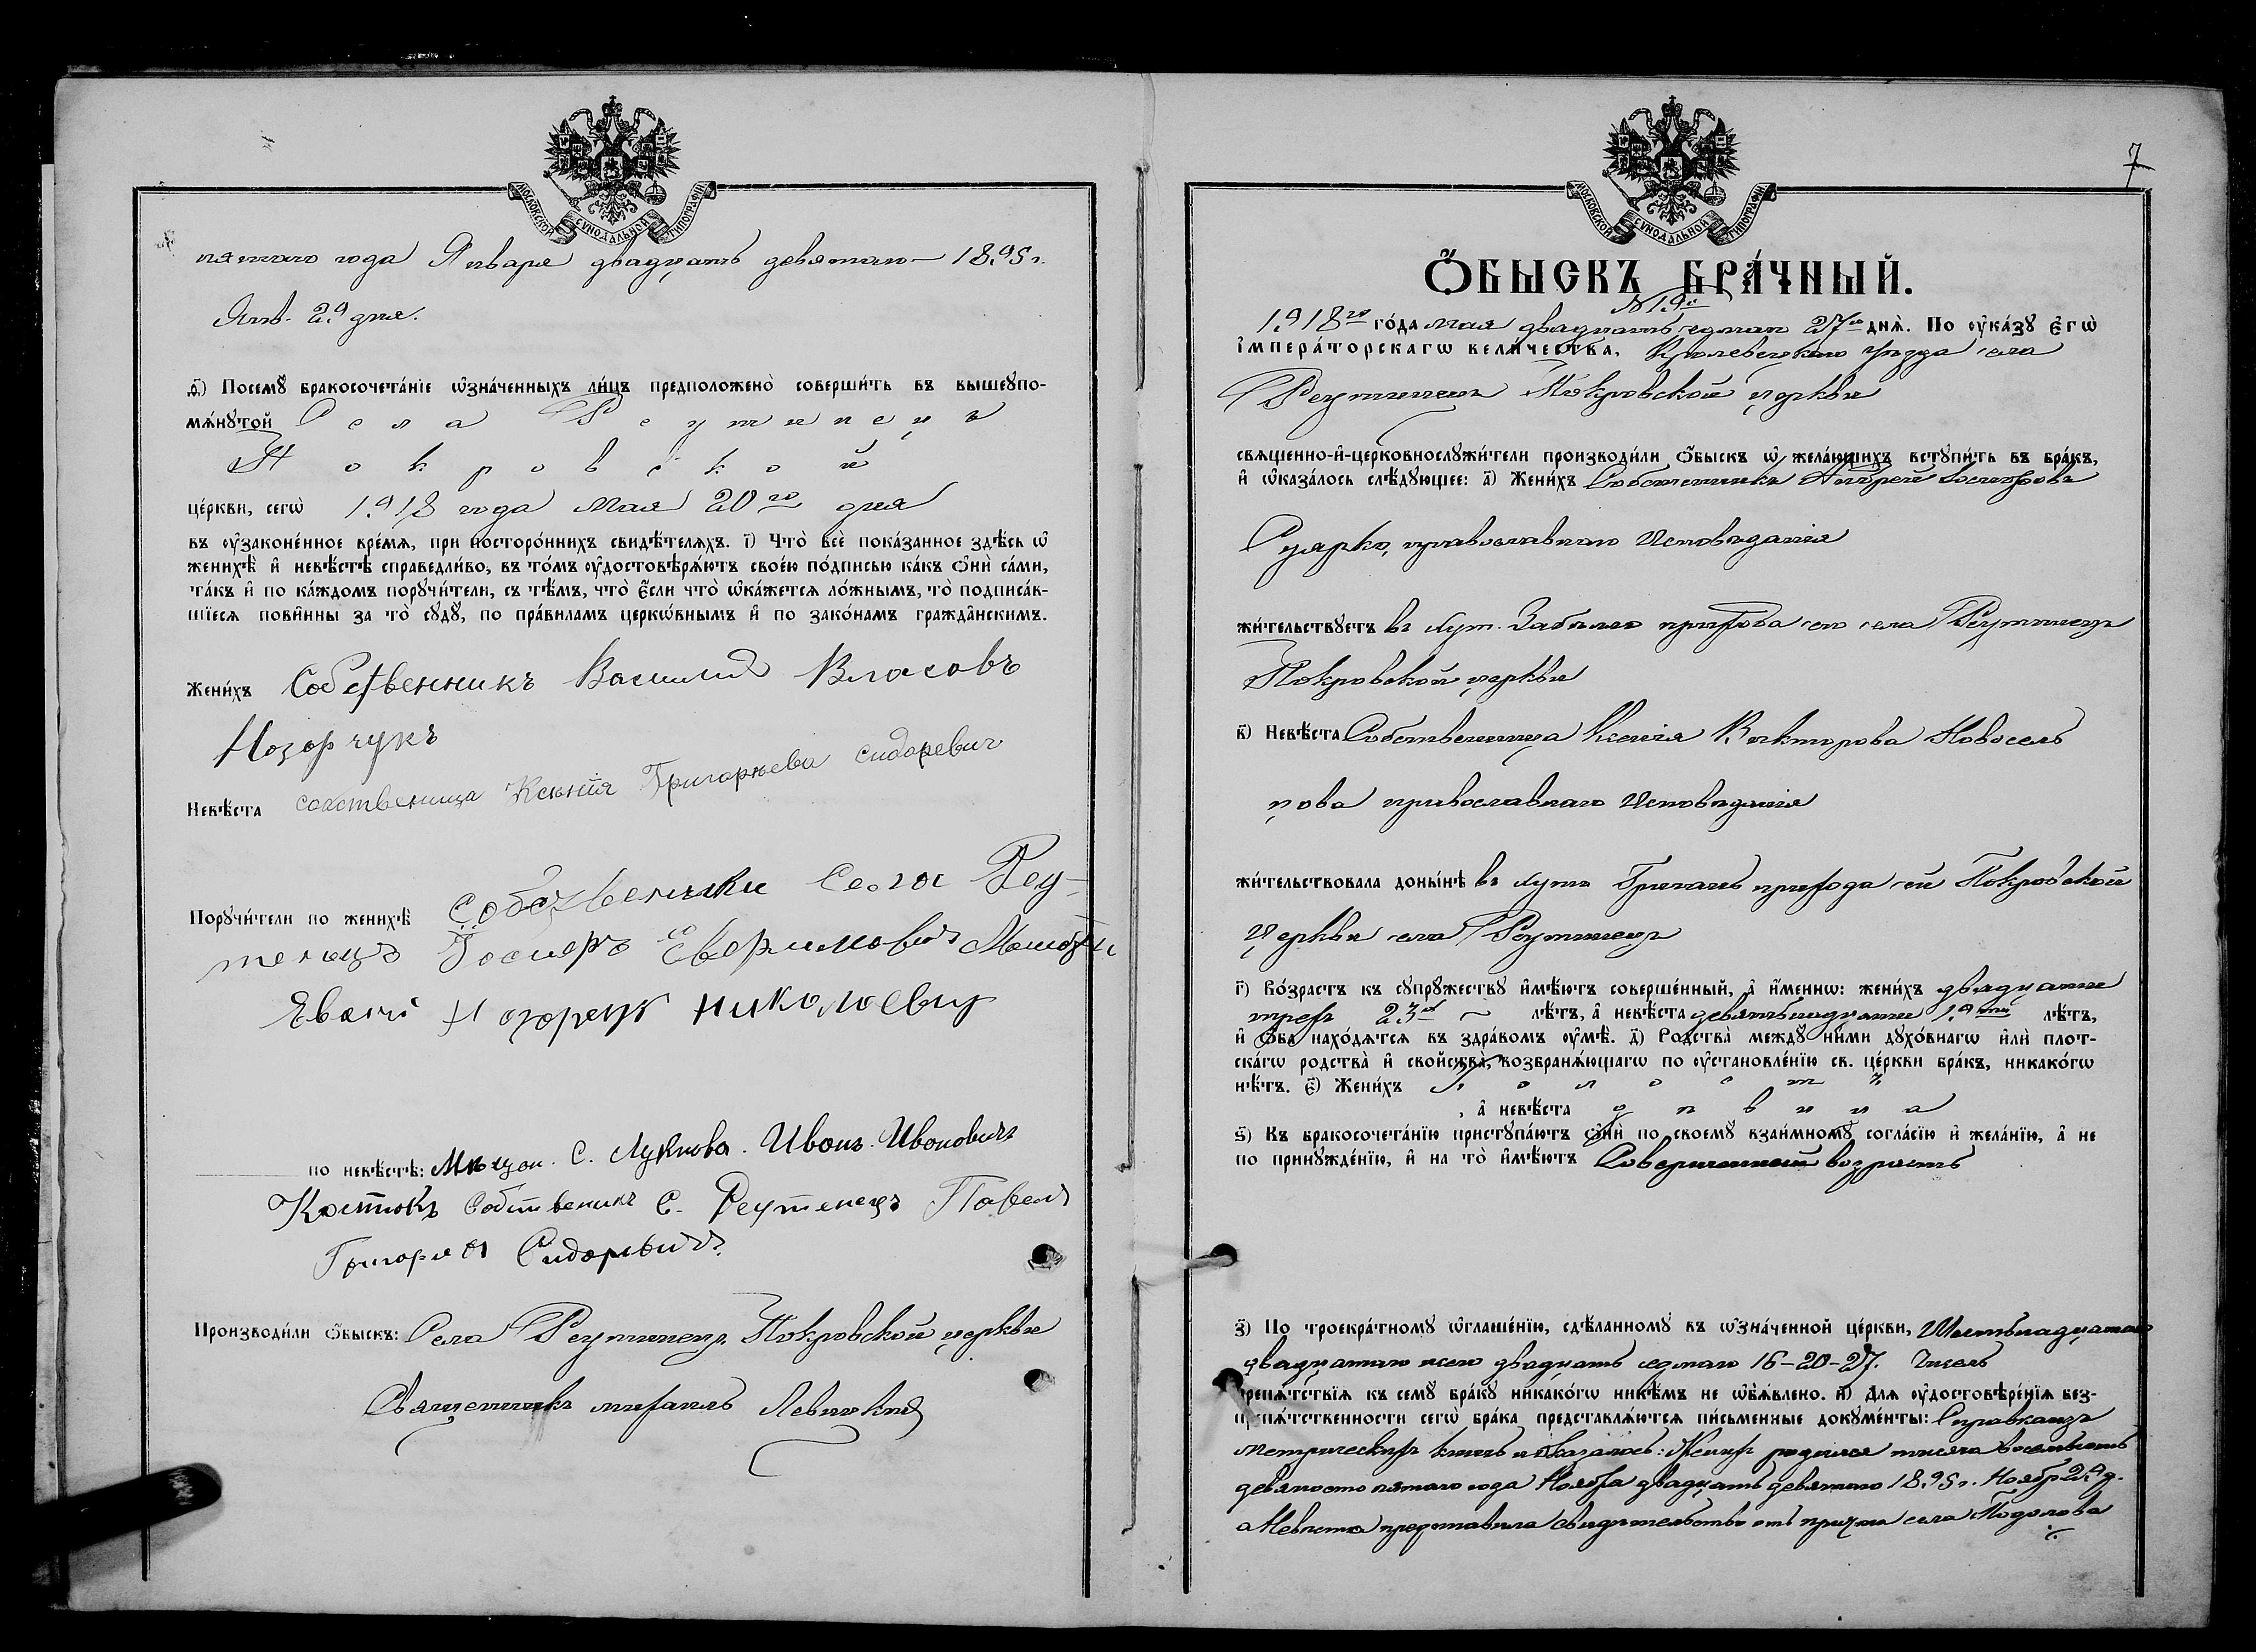 МОСКОВСКОЙ СѴНОДАЛЬНОЙ ТИПОГРАФІИ
пятаго года Января двадцать девятаго — 1895 г.
Янв. 29 дня.
д҃) Посемꙋ̀ бракосочета́нїе ѡ҆зна́ченныхъ ли́цъ предположено̀ соверши́ть въ вышеꙋпо-
мѧ́нꙋтой Села Реутинецъ
Покровской
це́ркви, сегѡ̀ 1918 года Мая 20го дня
въ ᲂу҆законе́нное вре́мѧ, при посторо́ннихъ свидѣ́телѧхъ. і҃) Что̀ всѐ пока́занное здѣ́сь ѡ҆
женихѣ̀ и҆ невѣ́стѣ справедли́во, въ то́мъ ᲂу҆достовѣрѧ́ютъ свое́ю по́дписью ка́къ ѻ҆нѝ са́ми,
та́къ и҆ по ка́ждомъ порꙋчи́тели, съ тѣ́мъ, что̀ є҆́сли что̀ ѡ҆ка́жетсѧ ло́жнымъ, то̀ подписа́в-
шїесѧ пови́нны за то̀ сꙋдꙋ̀, по пра́виламъ церкѡ́внымъ и҆ по зако́намъ гражда̑нскимъ.
Жени́хъ Собственникъ Василий Власовъ
Нозорчукъ
Невѣ́ста собственица Ксенія Григорьева Сидоревич
Порꙋчи́тели по женихѣ̀ Собственики Села Реу-
тенецъ
Николоевич
по невѣ́стѣ: Мѣщан. С. Лукнова. Иванъ. Ивановичъ
Костюкъ Собственикъ С. Реутенецъ Павелъ
Григорев Сидоревичъ
Производи́ли ѻ҆́быскъ: Села Реутинецъ Покровской церкви
Священникъ михаилъ Левицкій
7
МОСКОВСКОЙ СѴНОДАЛЬНОЙ ТИПОГРАФІИ
Ѻ҆́БЫСКЪ БРА́ЧНЫЙ.
№ 19й
1918го го́да мая двадцать седмаго 27го днѧ̀. По ᲂу҆ка́зꙋ є҆гѡ̀
і҆мпера́торскагѡ вели́чества, Кролевецкаго уѣзда села
Реутинецъ Покровской церкви
свѧщенно-и҆-церковнослꙋжи́тели производи́ли ѻ҆́быскъ ѡ҆ жела́ющихъ встꙋпи́ть въ бра́къ,
и҆ ѡ҆каза́лось слѣ́дꙋющее: а҃) Жени́хъ Собственникъ Андрей
православнаго исповѣданія
жи́тельствꙋетъ въ хут. прихода сего села Реутинецъ
Покровской церкви
в҃) Невѣ́ста Собственница Ксенія Викторова Новосель
цова православнаго исповѣданія
жи́тельствовала доны́нѣ въ хутъ прихода сей Покровской
Церкви села Реутинецъ
г҃) Во́зрастъ къ сꙋпрꙋ́жествꙋ и҆мѣ́ютъ соверше́нный, а҆ и҆́меннѡ: жени́хъ двадцати
трехъ 23хъ лѣ́тъ, а҆ невѣ́ста девятьнадцати 19ти лѣ́тъ,
и҆ ѻ҆́ба нахо́дѧтсѧ въ здра́вомъ ᲂу҆мѣ̀. д҃) Родства̀ междꙋ̀ ни́ми дꙋхо́внагѡ и҆лѝ плот-
ска́гѡ родства̀ и҆ свойства̀, возбранѧ́ющагѡ по ᲂу҆становле́нїю св. це́ркви бра́къ, никако́гѡ
нѣ́тъ. є҃) Жени́хъ холостъ
, а҆ невѣ́ста дѣвица
ѕ҃) Къ бракосочета́нїю пристꙋпа́ютъ ѻ҆нѝ по своемꙋ̀ взаи́мномꙋ согла́сїю и҆ жела́нїю, а҆ не
по принꙋжде́нїю, и҆ на то̀ и҆мѣ́ютъ Совершенный возрастъ
з҃) По троекра́тномꙋ ѡ҆глаше́нїю, сдѣ́ланномꙋ въ ѡ҆зна́ченной це́ркви, Шестьнадцатаго
двадцатаго двадцать седмаго 16-20-27. Числъ
препѧ́тствїѧ къ семꙋ̀ бра́кꙋ никако́гѡ никѣ́мъ не ѡ҆б̾ѧ́влено. и҃) Длѧ ᲂу҆достовѣре́нїѧ без-
препѧ́тственности сегѡ̀ бра́ка представлѧ́ютсѧ пи́сьменные докꙋме́нты: Справка изъ
метрическихъ книгъ показалось: Женихъ родился тысяча восемьсотъ
девяносто пятаго года Ноября двадцать девятаго 1895 г. Ноябр 29 д.
а Невѣста представила свидѣтельство отъ причта села Подолова